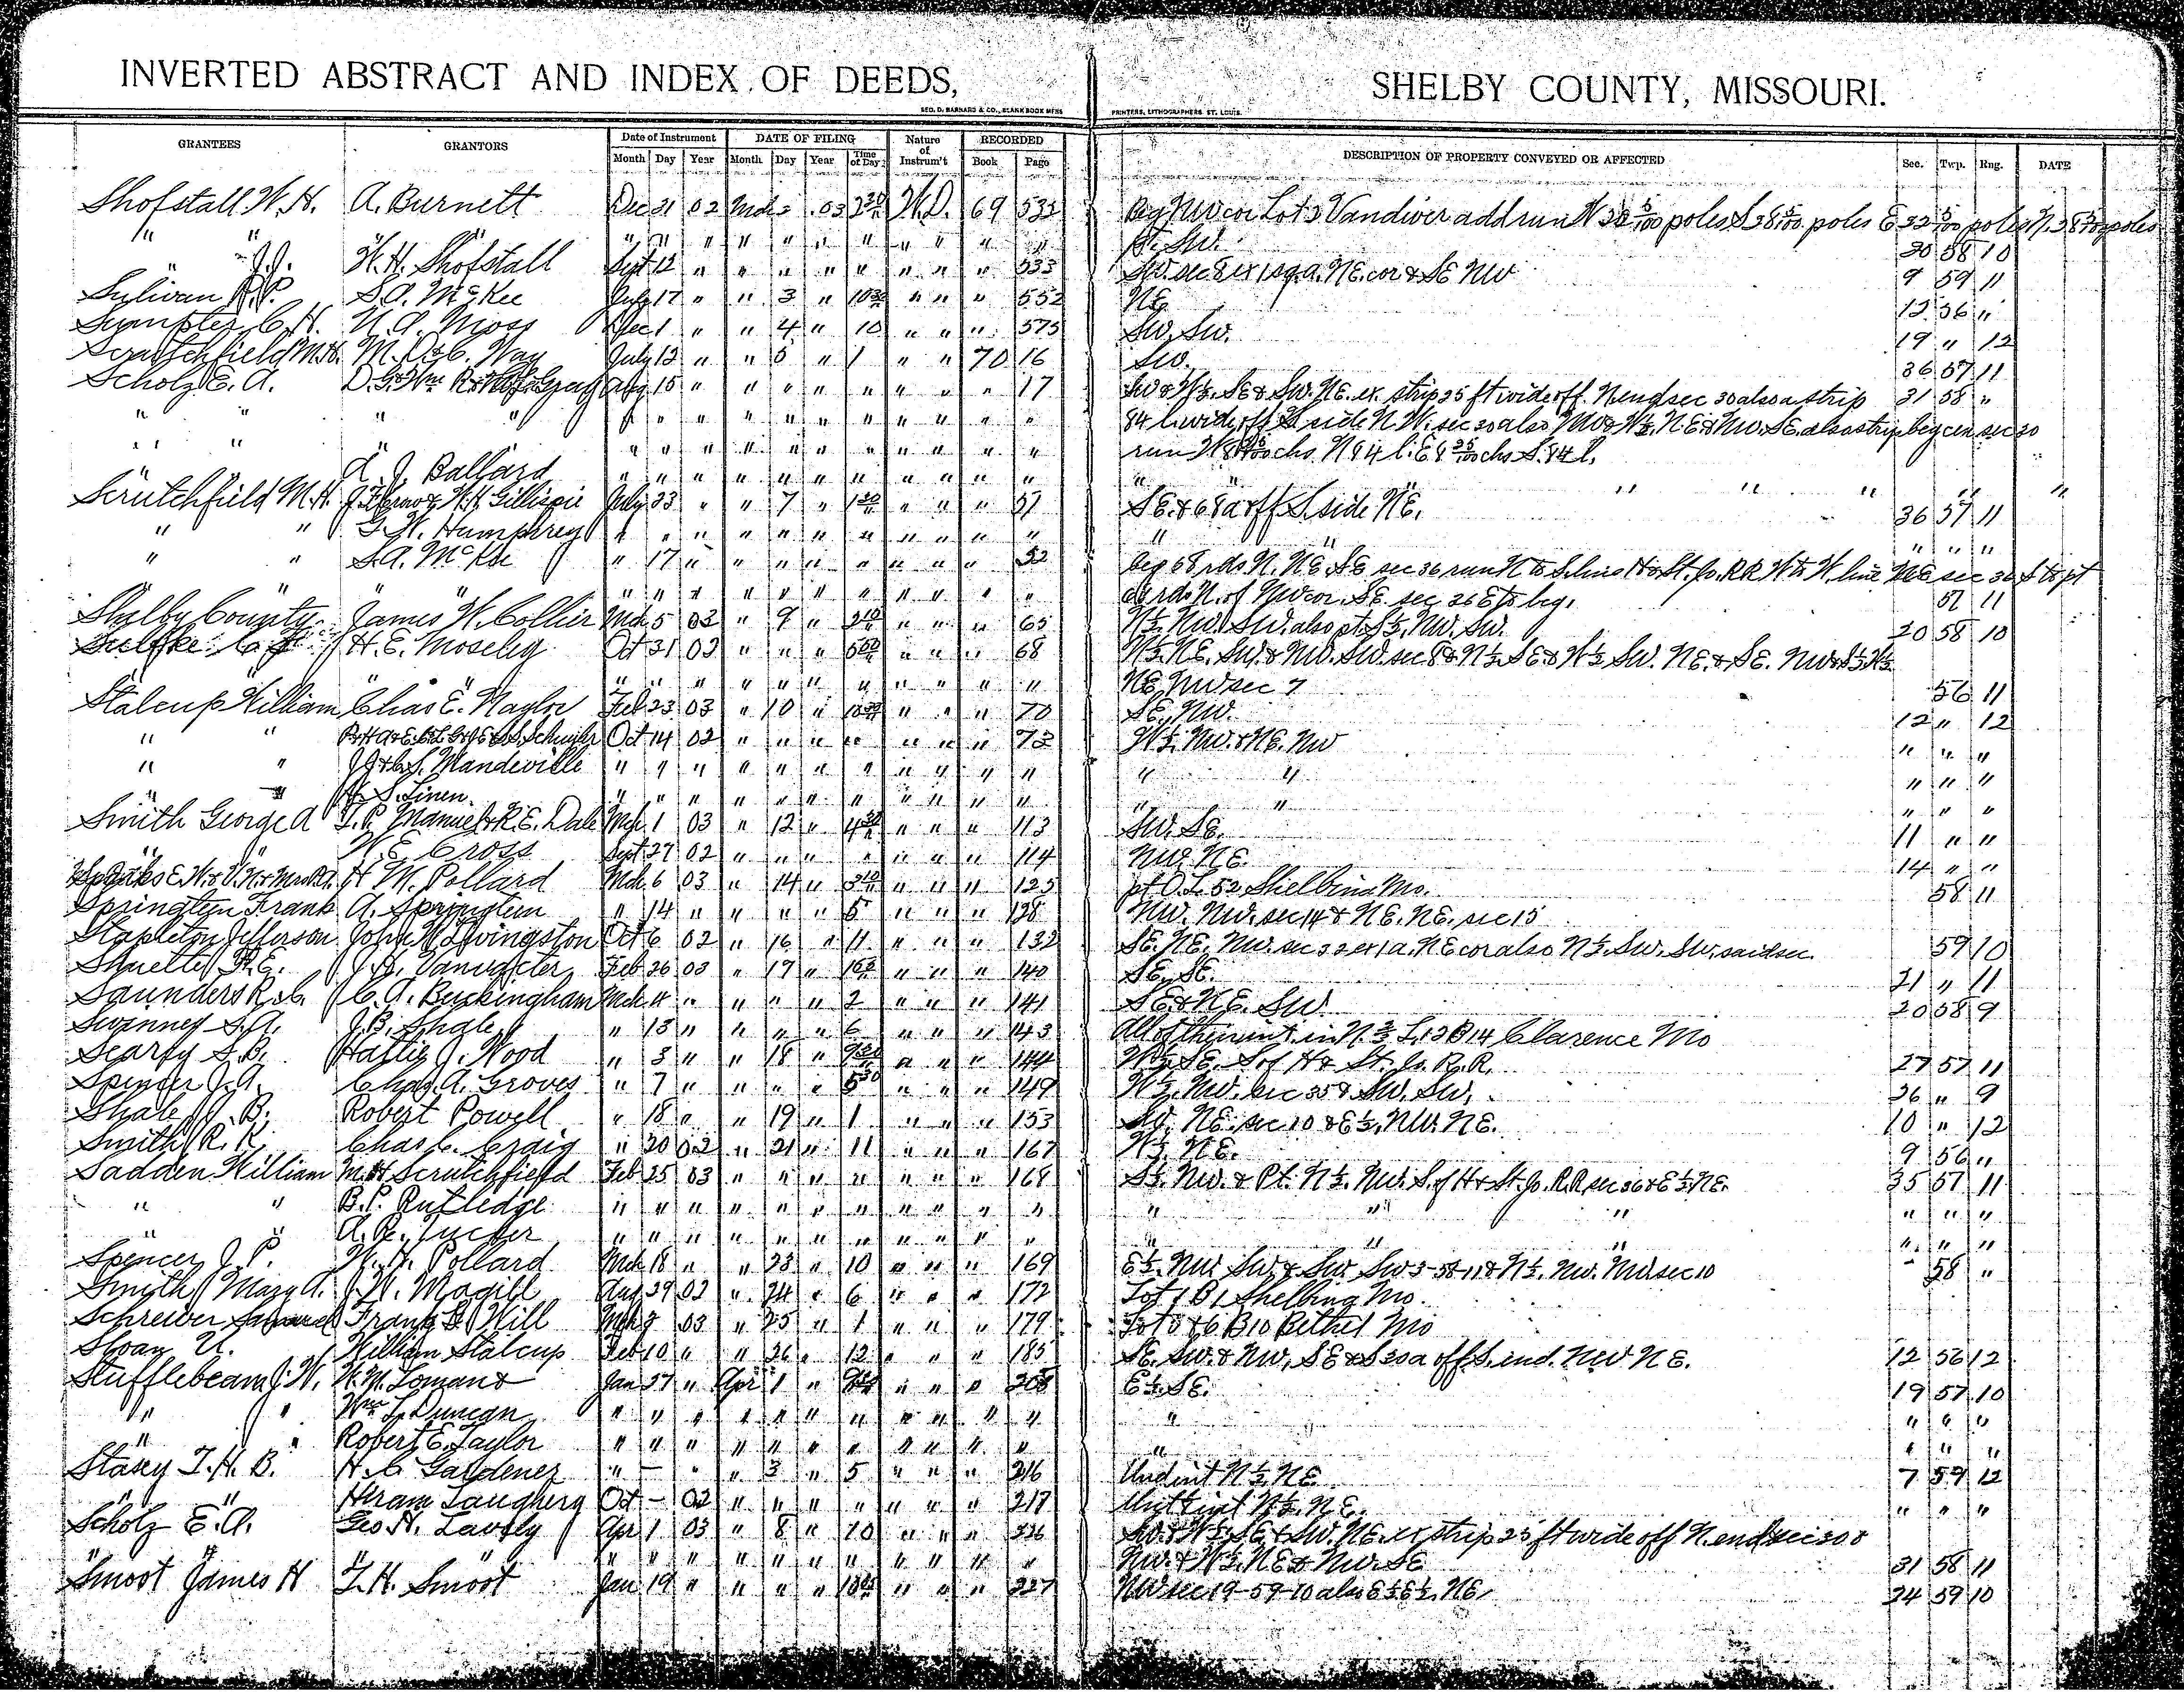 INVERTED ABSTRACT AND INDEX OF DEEDS, SHELBY COUNTY, MISSOURI.
GEO. D. BARNARD & CO., BLANK BOOK MFRS PRINTERS, LITHOGRAPHERS ST. LOUIS.
GRANTEES GRANTORS Date of Instrument DATE OF FILING Nature of Instrum't RECORDED DESCRIPTION OF PROPERTY CONVEYED OR AFFECTED Sec. Twp. Rng. DATE
Month Day Year Month Day Year Time of Day Book Page
Shofstall W.H. A. Burnett Dec 31 02 Mch 2 03 W.D. 69 533 Beg NW cor Lot 3 Vandiver add run W 32 5/100 poles S 38 5/100 poles E 32 5/100 poles N. 38 5/100 poles
" " " " " " " " " " " " " pt. SW. 30 58 10
" J.J. W.H. Shofstall Sept 12 " " " " " " " " 533 SW. sec 8 ex 1 sq a. NE. cor & SE NW 9 59 11
Sylivan S.A. McKee July 17 " " 3 " 10 30 " " " 552 NE 12 56 "
Sumpter C.H. N.A. Moss Dec 1 " " 4 " 10 " " " 575 SW. SW. 19 " 12
Scrutchfield M.H. M.D. & C. Way July 12 " " 5 " 1 " " 70 16 SW. 36 57 11
Scholz E.A. Aug 15 " " " " " " " " 17 SW & W½ SE & SW. NE. ex. strip 25 ft wide off N end sec 30 also a strip 31 58 "
" " " " " " " " " " " " " " " 84 l. wide off S side N.W. sec 30 also NW & W½ NE & NW. SE. also strip beg cen sec 30
" " " " " " " " " " " " " run W 8 chs. N 84 l. E 8 chs S. 84 l.
" A. J. Ballard " " " " " " " " " " " " " " " " "
Scrutchfield M.H. W.H. Gillispie July 23 " " 7 " 1 30 " " " 51 SE. & 68 a off S. side NE. 36 57 11
" " G.W. Humphrey " " " " " " " " " " " " " " "
" " S.A. McKee " 17 " " " " " " " " 52 beg 68 rds N. NE. SE sec 36 run N to S. line H & St. Jo. RR W to W. line NE sec 36 S to pt
" " " " " " " " " " " " rds N. of NW cor. SE. sec 36 E to beg. 57 11
Shelby County James W. Collier Mch 5 03 " 9 " 2 10 " " " 65 N½ NW. SW. also pt. S½ NW. SW. 20 58 10
H.E. Moseley Oct 31 02 " " " " " " 68 W½ NE. SW. & NW. SW. sec 8 & N½ SE & W½ SW. NE. & SE. NW & S½ N½
" " " " " " " " " " " " NE NW sec 7 56 11
Stalcup William Chas E. Naylor Feb 23 03 " 10 " " " " 70 SE. NW. 12 " 12
" " Oct 14 02 " " " " " " " 73 W½ NW. & NE. NW " " "
" " Mandeville " " " " " " " " " " " " " " " "
" " H. S. Linen " " " " " " " " " " " " " " " "
Smith George A. T.P. Manuel & R.E. Dale Mch 1 03 " 12 " 4 30 " " " 113 SW. SE. 11 " "
" W. E. Cross Sept 27 02 " " " " " " " 114 NW. NE. 14 " "
H. M. Pollard Mch 6 03 " 14 " 3 10 " " " 125 pt O.L. 52 Shelbina Mo. 58 11
Springtem Frank A. Springtem " 14 " " " " 5 " " " 128 NW. NW. sec 14 & NE. NE. sec 15
Stapleton Jefferson John W. Livingston Oct 6 02 " 16 " 11 " " " 132 SE. NE. NW. sec 32 ex 1 a. NE cor also N½ SW. SW. said sec. 59 10
J.H. Vanvacter Feb 26 03 " 17 " " " " 140 SE. SE. 21 " 11
Saunders R.C. C.A. Buckingham Mch 4 " " " " 2 " " " 141 SE & NE. SW 20 58 9
Swinney S.A. J.B. Shale " 13 " " " " 6 " " " 143 All of their int. in N. L. 13 B 14 Clarence Mo
Searfy S.B. Hattie J. Wood " 3 " " 18 " 9 30 " " " 144 W½ SE. S of H & St. Jo. R.R. 27 57 11
Spencer J.A. Chas. A. Groves " 7 " " " " 5 30 " " " 149 W½ NW. sec 35 & SW. SW. 26 " 9
Shale J.B. Robert Powell " 18 " " 19 " 1 " " " 153 SW. NE. sec 10 & E½ NW. NE. 10 " 12
Smith R. K. Chas. C. Craig " 20 02 " 21 " 11 " " " 167 W½ NE. 9 56 "
Sadden William M.H. Scrutchfield Feb 25 03 " " " " " " " 168 S½ NW. & Pt. N½ NW. S. of H & St. Jo. R.R. sec 36 & E½ NE. 35 57 11
" " B.P. Rutledge " " " " " " " " " " " " " " " " "
" " A.R. Tucker " " " " " " " " " " " " " " " " "
Spencer J. P. W.H. Pollard Mch 18 " " 23 " 10 " " " 169 E½ NW SW & SW SW 3-58-11 & N½ NW. NW. sec 10 58 "
Smith Mary A. J.W. Magill Aug 29 02 " 24 " 6 " " " 172 Lot 1 B 1 Shelbina Mo.
Schreiver Samuel Frank E. Will Mch 7 03 " 25 " 1 " " " 179 Lot 5 & 6 B 10 Bethel Mo
Sloan U. William Stalcup Feb 10 " " 26 " 12 " " " 185 SE. SW. & NW. SE & S 30 a off S. end. NW NE. 12 56 12
Stufflebeam J.W. W.M. Loman & Jan 27 " Apr 1 " " " " 208 E½ SE. 19 57 10
" " Wm L. Duncan " " " " " " " " " " " " " " "
" " Robert E. Taylor " " " " " " " " " " " " " " "
Stacy T.H.B. H.C. Gardener " — " " 3 " 5 " " " 216 Und int N½ NE 7 59 12
" " Hiram Laugherg Oct — 02 " " " " " " " 217 int N½ NE. " " "
Scholz E.A. Geo H. Lavely Apr 1 03 " 8 " 10 " " " 226 SW & W½ SE & SW. NE. ex strip 25 ft wide off N. end sec 30 &
" " " " " " " " " " " " " NW. & W½ NE & NW. SE 31 58 11
Smoot James H T.H. Smoot Jan 19 " " " " " " " 227 NW sec 19-59-10 also E½ E½ NE. 24 59 10